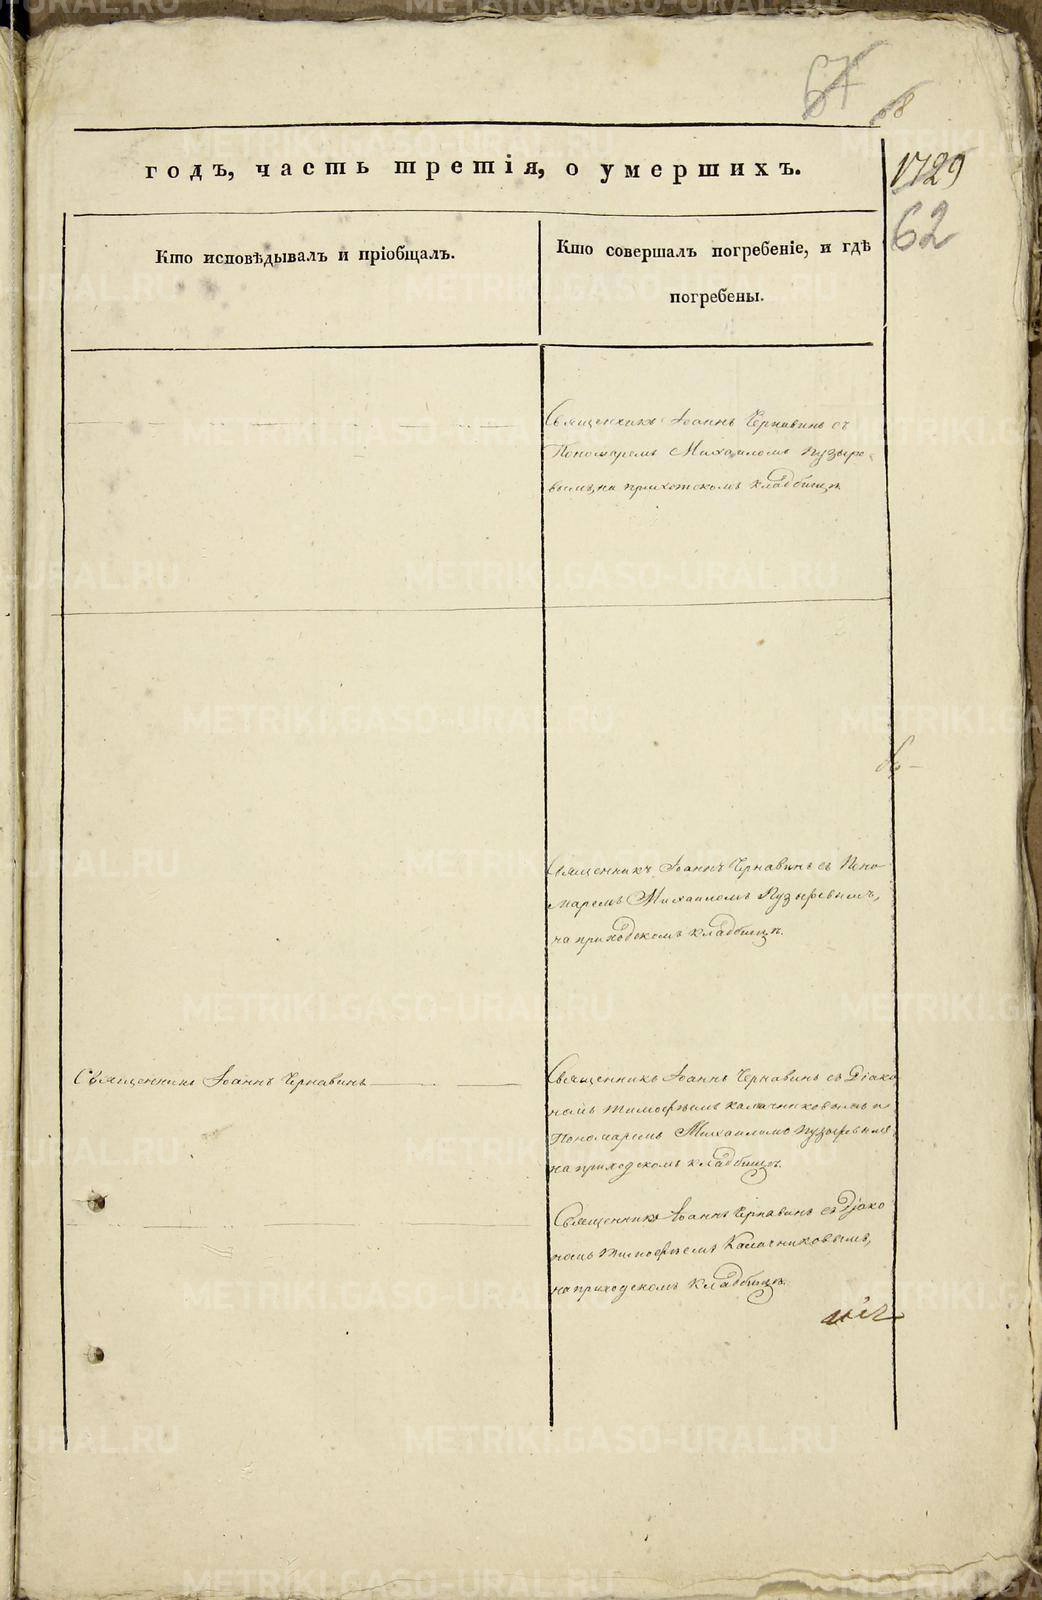 67
68
годъ, часть третія, о умершихъ.
1729
62
Кто исповѣдывалъ и пріобщалъ.
Кто совершалъ погребеніе, и гдѣ
погребены.
Священникъ Іоаннъ Чернавинъ съ
Пономаремъ Михаиломъ Пузыре-
вымъ, на приходскомъ кладбищѣ
Священникъ Іоаннъ Чернавинъ съ Поно
маремъ Михаиломъ Пузыревымъ,
на приходскомъ кладбищѣ.
Священникъ Іоаннъ Чернавинъ
Священникъ Іоаннъ Чернавинъ съ Діако
номъ Тимофѣемъ Калачниковымъ и
Пономаремъ Михаиломъ Пузыревымъ
на приходскомъ кладбищѣ.
Священникъ Іоаннъ Чернавинъ съ Діако
номъ Тимофѣемъ Калачниковымъ,
на приходскомъ кладбищѣ.
METRIKI.GASO-URAL.RU